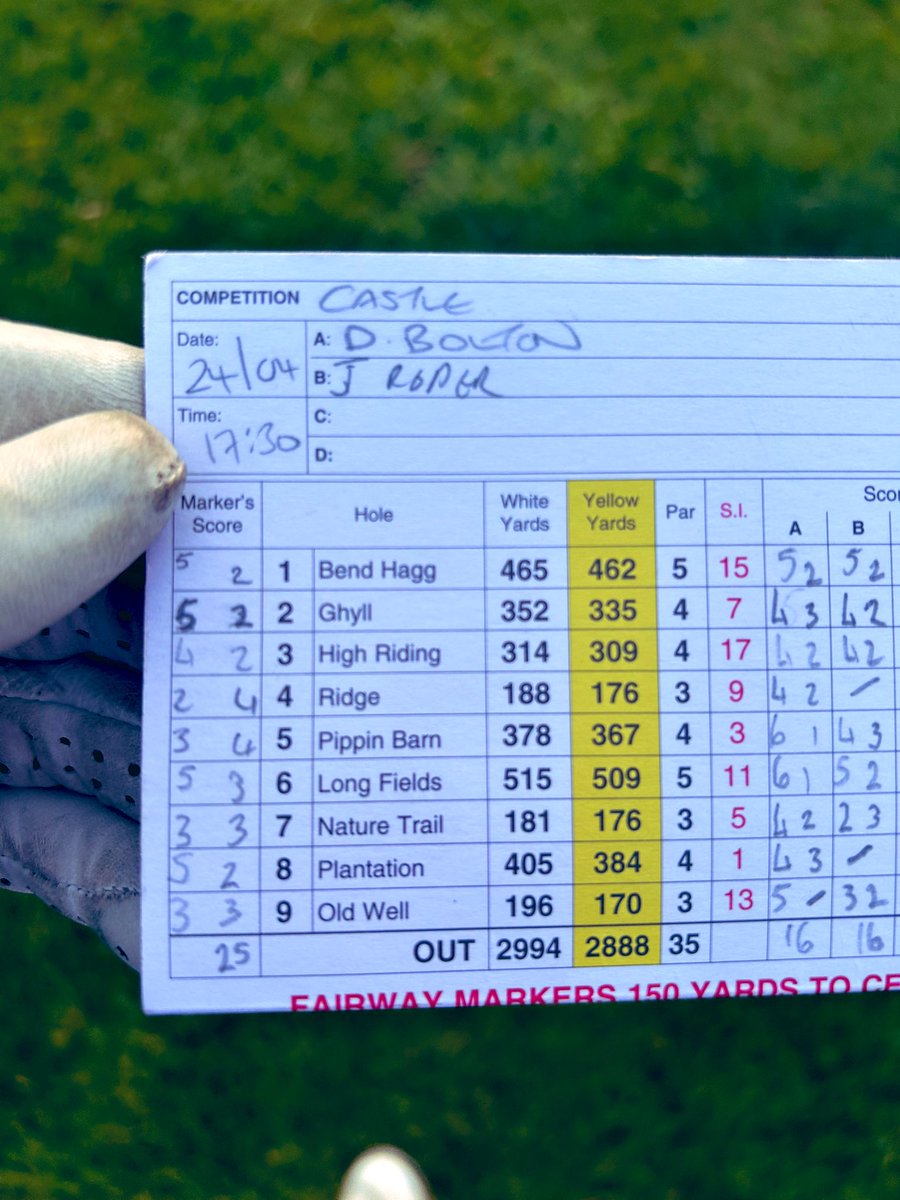 COMPETITION CASTLE
Date: 24/04
A: D. BOLTON
B: J ROPER
Time: 17:30
C:
D:
Marker's Score Hole White Yards Yellow Yards Par S.I. A B
5 2 1 Bend Hagg 465 462 5 15 5 2 5 2
5 2 2 Ghyll 352 335 4 7 4 3 4 2
4 2 3 High Riding 314 309 4 17 4 2 4 2
2 4 4 Ridge 188 176 3 9 4 2 -
3 4 5 Pippin Barn 378 367 4 3 6 1 4 3
5 3 6 Long Fields 515 509 5 11 6 1 5 2
3 3 7 Nature Trail 181 176 3 5 4 2 2 3
5 2 8 Plantation 405 384 4 1 4 3 -
3 3 9 Old Well 196 170 3 13 5 - 3 2
25 OUT 2994 2888 35 16 16
FAIRWAY MARKERS 150 YARDS TO